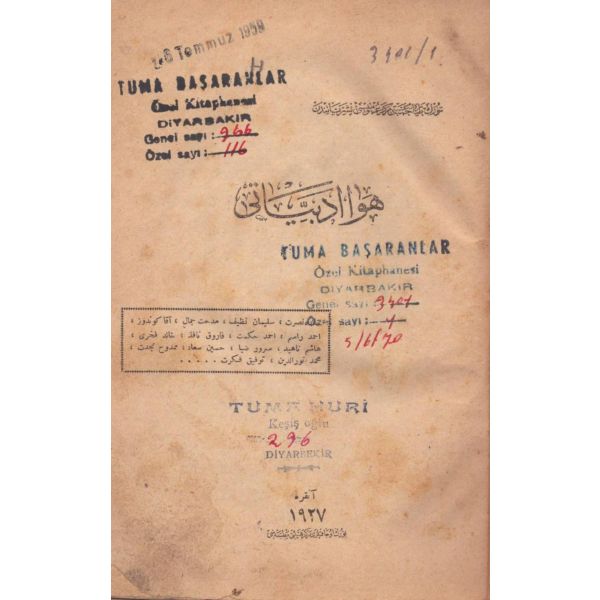 6 Temmuz 1959
3401/1
TUMA BAŞARANLAR
Özel Kitaphanesi
DİYARBAKIR
Genel sayı : 966
Özel sayı : 116
هوا ادبیاتی
TUMA BAŞARANLAR
Özel Kitaphanesi
DİYARBAKIR
Genel sayı : 3401
Özel sayı : 1
5/6/70
نصرت ، سلیمان نظیف ، مدحت جمال ، آقا کوندوز ،
احمد راسم ، احمد حکمت ، فاروق نافذ ، خالد فخری ،
هاشم ناهید ، سرور ضیا ، حسین سعاد ، ممدوح نجدت ،
محمد نورالدین ، توفیق فکرت . . . . .
TUMA NURİ
Keşiş oğlu
296
DİYARBEKİR
آنقره
١٩٢٧